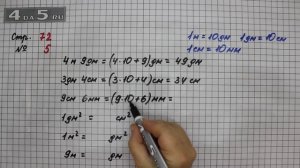 4DA5.RU
Стр. 72
№ 5
1м = 10дм 1дм = 10см
1см = 10мм
4м 9дм = (4·10+9)дм = 49дм
3дм 4см = (3·10+4)см = 34см
9см 6мм = (9·10+6)мм =
1дм² = см²
1м² = дм²
9м = дм